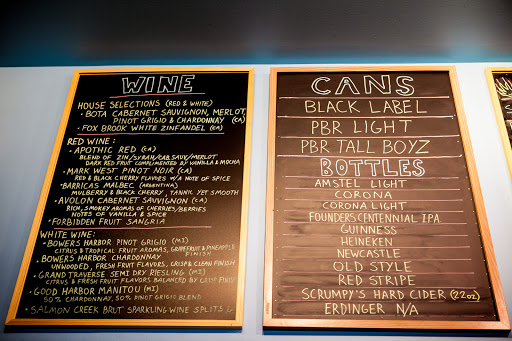 WINE
HOUSE SELECTIONS (RED & WHITE)
• BOTA CABERNET SAUVIGNON, MERLOT,
PINOT GRIGIO & CHARDONNAY (CA)
• FOX BROOK WHITE ZINFANDEL (CA)
RED WINE:
• APOTHIC RED (CA)
BLEND OF ZIN/SYRAH/CAB SAUV/MERLOT
DARK RED FRUIT COMPLIMENTED BY VANILLA & MOCHA
• MARK WEST PINOT NOIR (CA)
RED & BLACK CHERRY FLAVORS W/A NOTE OF SPICE
• BARRICAS MALBEC (ARGENTINA)
MULBERRY & BLACK CHERRY, TANNIC YET SMOOTH
• AVOLON CABERNET SAUVIGNON (CA)
RICH, SMOKEY AROMAS OF CHERRIES/BERRIES
NOTES OF VANILLA & SPICE
• FORBIDDEN FRUIT SANGRIA
WHITE WINE:
• BOWERS HARBOR PINOT GRIGIO (MI)
CITRUS & TROPICAL FRUIT AROMAS, GRAPEFRUIT & PINEAPPLE
FINISH
• BOWERS HARBOR CHARDONNAY
UNWOODED, FRESH FRUIT FLAVORS, CRISP & CLEAN FINISH
• GRAND TRAVERSE SEMI DRY RIESLING (MI)
CITRUS & FRESH FRUIT FLAVORS BALANCED BY CRISP FINISH
• GOOD HARBOR MANITOU (MI)
50% CHARDONNAY, 50% PINOT GRIGIO BLEND
• SALMON CREEK BRUT SPARKLING WINE SPLITS
CANS
BLACK LABEL
PBR LIGHT
PBR TALL BOYZ
BOTTLES
AMSTEL LIGHT
CORONA
CORONA LIGHT
FOUNDERS CENTENNIAL IPA
GUINNESS
HEINEKEN
NEWCASTLE
OLD STYLE
RED STRIPE
SCRUMPY'S HARD CIDER (22oz)
ERDINGER N/A